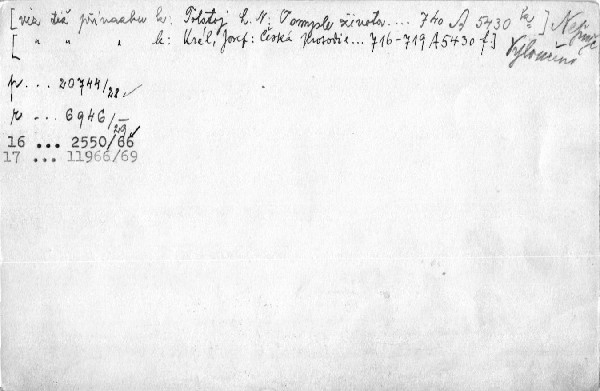 [viz též přívazku k: Tolstoj L. N: O smysle života.... 740 A 5430
[ " " " k: Král, Josef: Česká prosodie... 716-719 A 5430 f.]
Vyloučeno
... 20744/28
... 6946/29
16 ... 2550/66
17 ... 11966/69